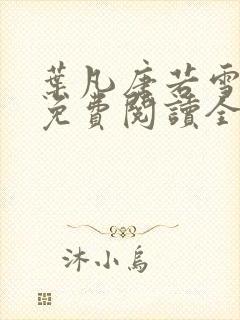 葉凡唐若雪
免費閱讀全
沐小烏